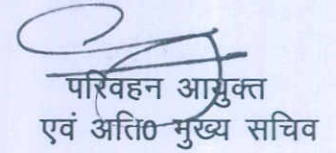 परिवहन आयुक्त
एवं अति० मुख्य सचिव